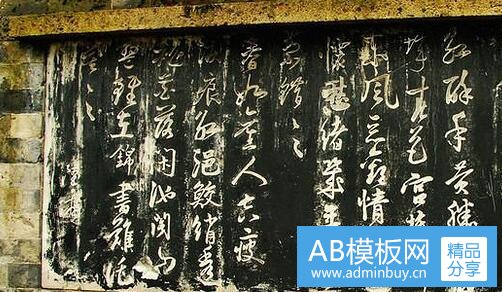 红酥手黄縢
城春色宫墙
东风恶欢情
怀愁绪几年
索错々々
春如旧人空瘦
泪痕红浥鲛绡透
桃花落闲池阁山
盟虽在锦书难托
莫々々
AB模板网
www.adminbuy.cn
精品
分享